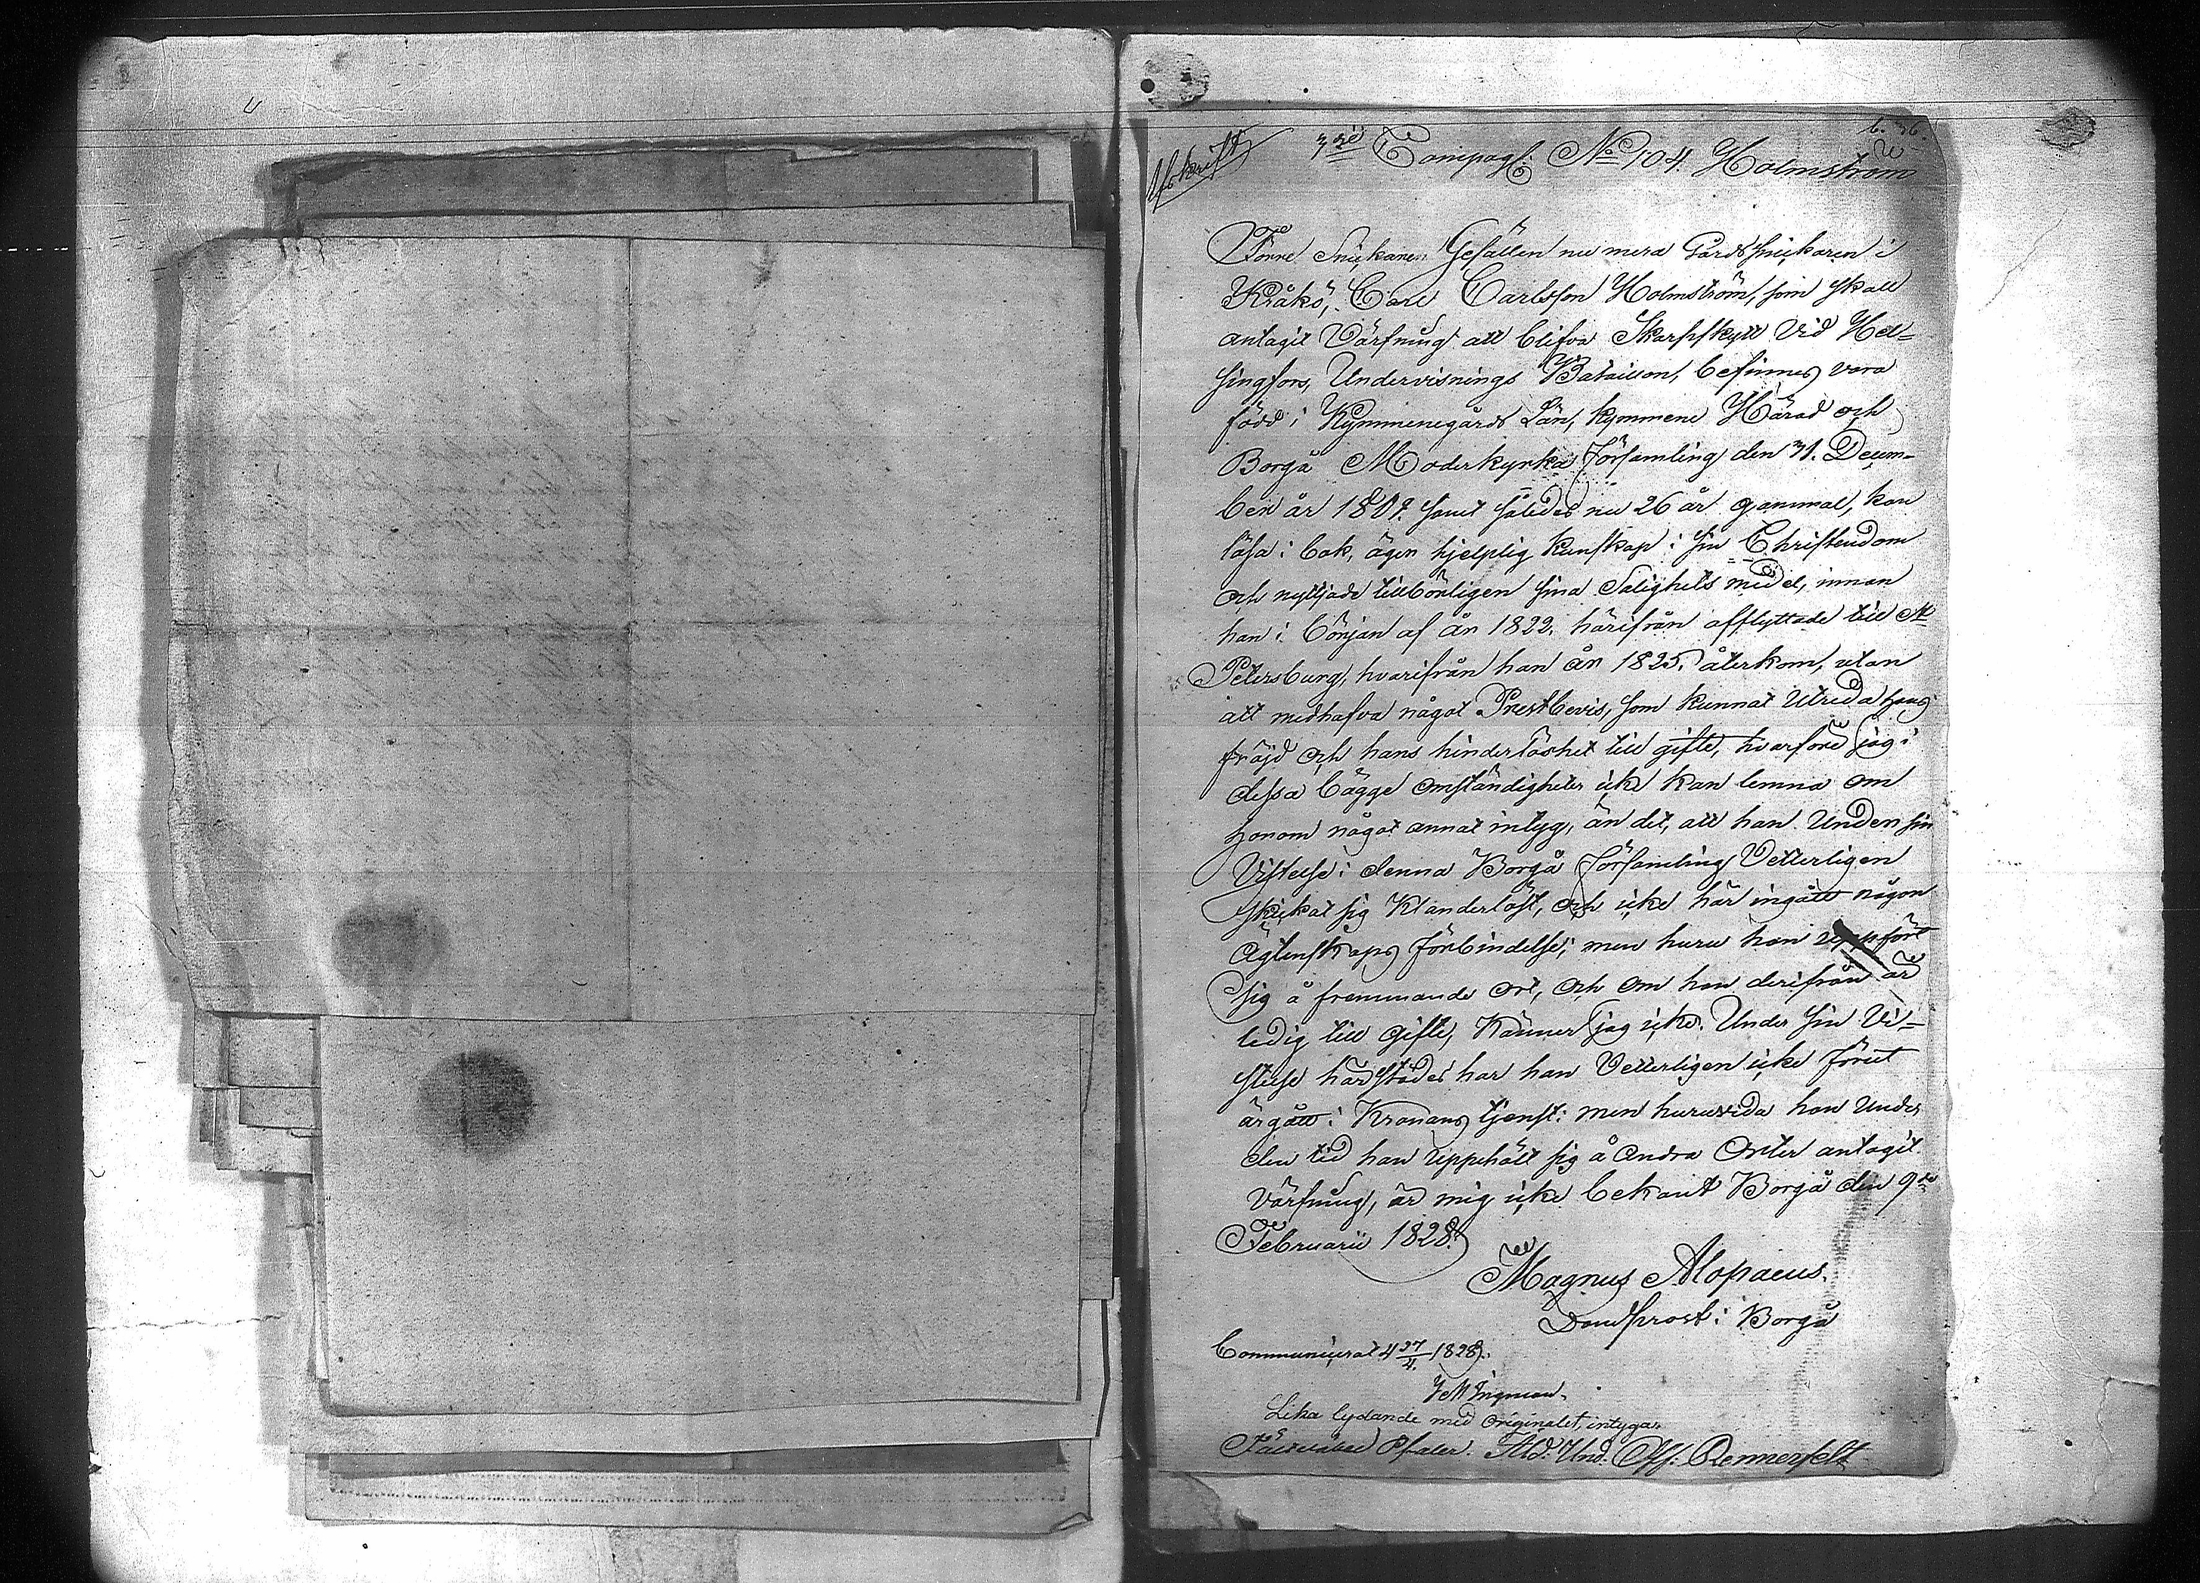 b. 36.
Afskrift
3die Compag: No 104. Holmström
Förre Snickare Gesällen nu mera Gårdssnickaren i
Kråkö, Carl Carlsson Holmström, som skall
antagit Värfning att blifva Skarpskytt vid Hel-
singfors, Undervisnings Bataillon, befinnes vara
född i Kymmenegårds Län, Kymmene Härad och
Borgå Moderkyrka Församling den 31. Decem-
ber år 1801. samt således nu 26 år gammal, kan
läsa i bok, äger hjelplig kunskap i sin Christendom
och nyttjade tillbörligen sina Salighets medel, innan
han i början af år 1822. härifrån afflyttade till St
Petersburg, hvarifrån han år 1825. återkom, utan
att medhafva något Prestbevis, som kunnat utreda hans
fräjd och hans hinderlöshet till gifte, hvarföre jag i
dessa bägge omständigheter icke kan lemna om
honom något annat intyg, än det, att han under sin
Vistelse i denna Borgå Församling Vetterligen
skickat sig Klanderlöst, och icke här ingått någon
Ägtenskaps förbindelse; men huru han uppfört
sig å fremmande ort, och om han derifrån är
ledig till gifte, känner jag icke. Under sin Vi-
stelse härstädes har han Vetterligen icke förut
ärgått i Kronans tjenst: men huruvida han under
den tid han uppehållt sig å andra Orter antagit
Värfning, är mig icke bekant Borgå den 9de
Februarii 1828.
Magnus Alopaeus.
Domprost i Borgå
Communicerat 4 27/4. 1828.
J M Ingman.
Lika lydande med originalet, intygar
Pfaler. Und. Off: Rennerfelt